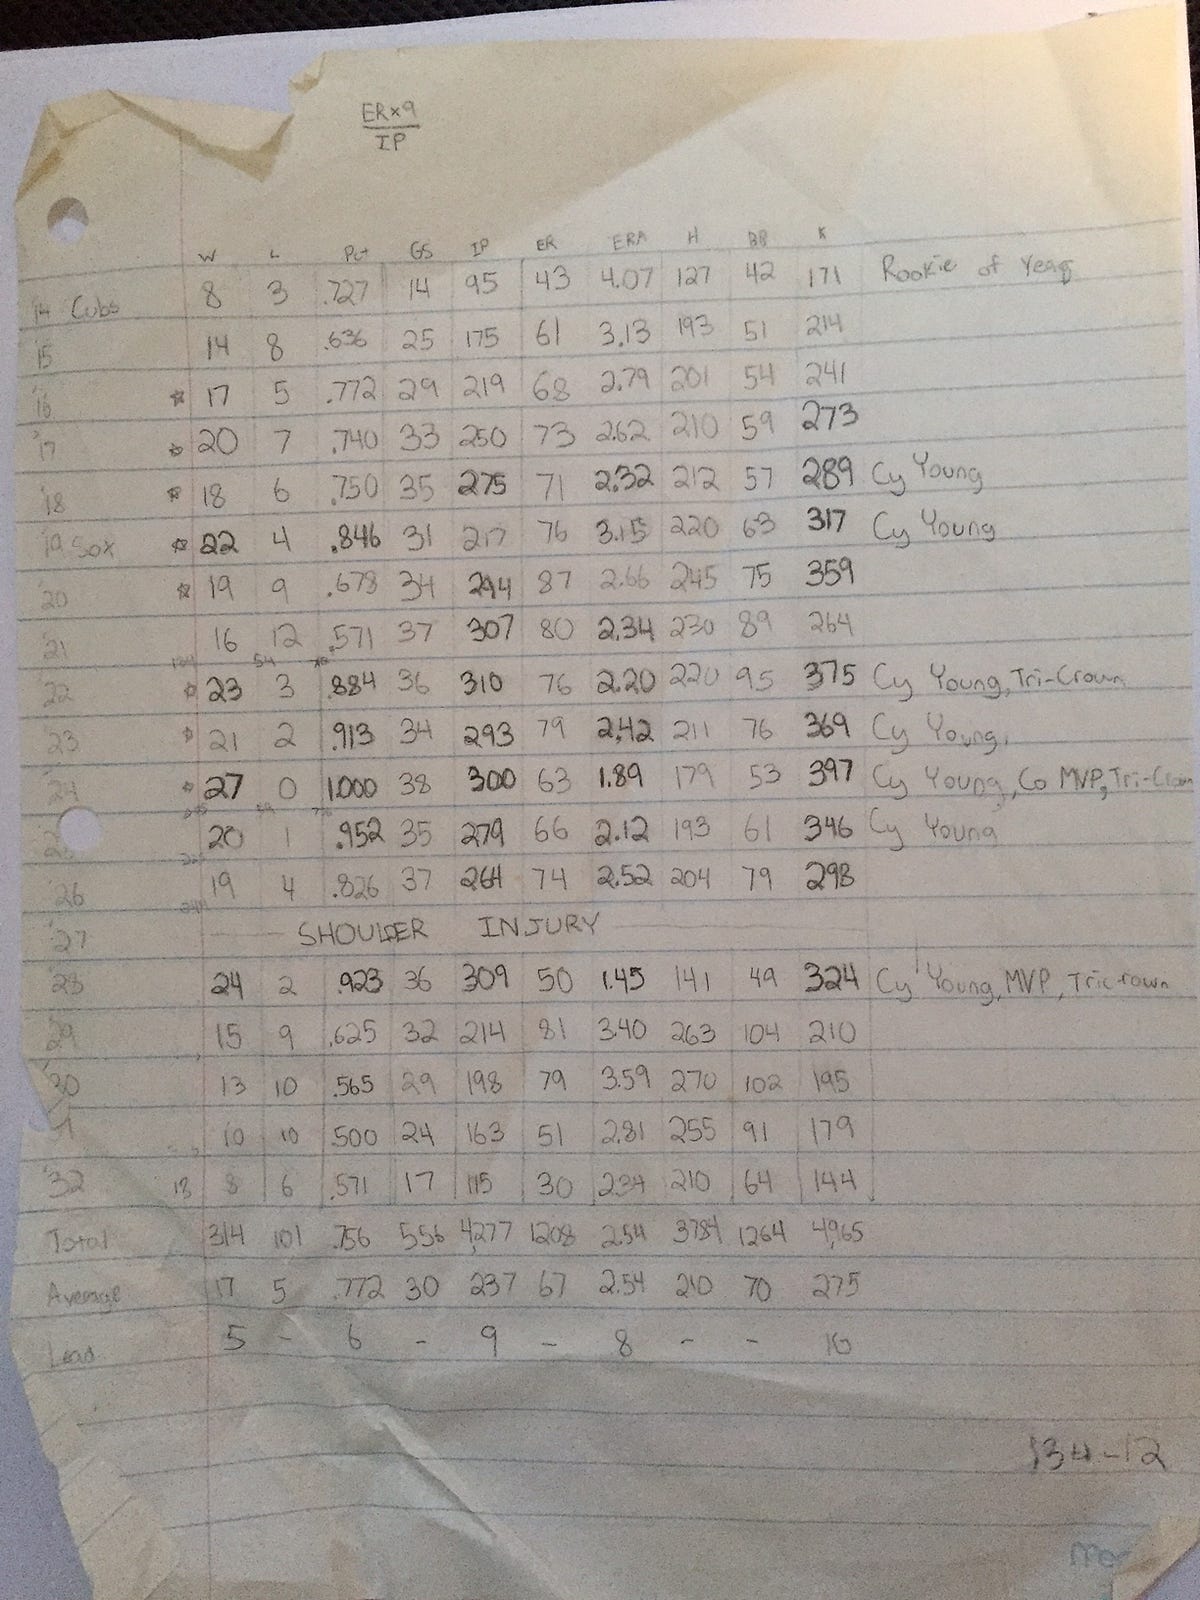 ER×9
IP
W L Pct GS IP ER ERA H BB K
'14 Cubs 8 3 .727 14 95 43 4.07 127 42 171 Rookie of Year
'15 14 8 .636 25 175 61 3.13 193 51 214
'16 ☆ 17 5 .772 29 219 68 2.79 201 54 241
'17 ☆ 20 7 .740 33 250 73 2.62 210 59 273
'18 ☆ 18 6 .750 35 275 71 2.32 212 57 289 Cy Young
'19 Sox ☆ 22 4 .846 31 217 76 3.15 220 63 317 Cy Young
'20 ☆ 19 9 .678 34 294 87 2.66 245 75 359
'21 16 12 .571 37 307 80 2.34 230 89 264
'22 ☆ 23 3 .884 36 310 76 2.20 220 95 375 Cy Young, Tri-Crown
'23 ☆ 21 2 .913 34 293 79 2.42 211 76 369 Cy Young,
'24 ☆ 27 0 1.000 38 300 63 1.89 179 53 397 Cy Young, Co MVP, Tri-Crown
20 1 .952 35 279 66 2.12 193 61 346 Cy Young
'26 19 4 .826 37 264 74 2.52 204 79 298
'27 SHOULDER INJURY
'28 24 2 .923 36 309 50 1.45 141 49 324 Cy Young, MVP, Tricrown
'29 15 9 .625 32 214 81 3.40 263 104 210
'30 13 10 .565 29 198 79 3.59 270 102 195
10 10 .500 24 163 51 2.81 255 91 179
'32 13 8 6 .571 17 115 30 2.34 210 64 144
Total 314 101 .756 556 4,277 1208 2.54 3784 1264 4,965
Average 17 5 .772 30 237 67 2.54 210 70 275
Lead 5 - 6 - 9 - 8 - - 10
134-12